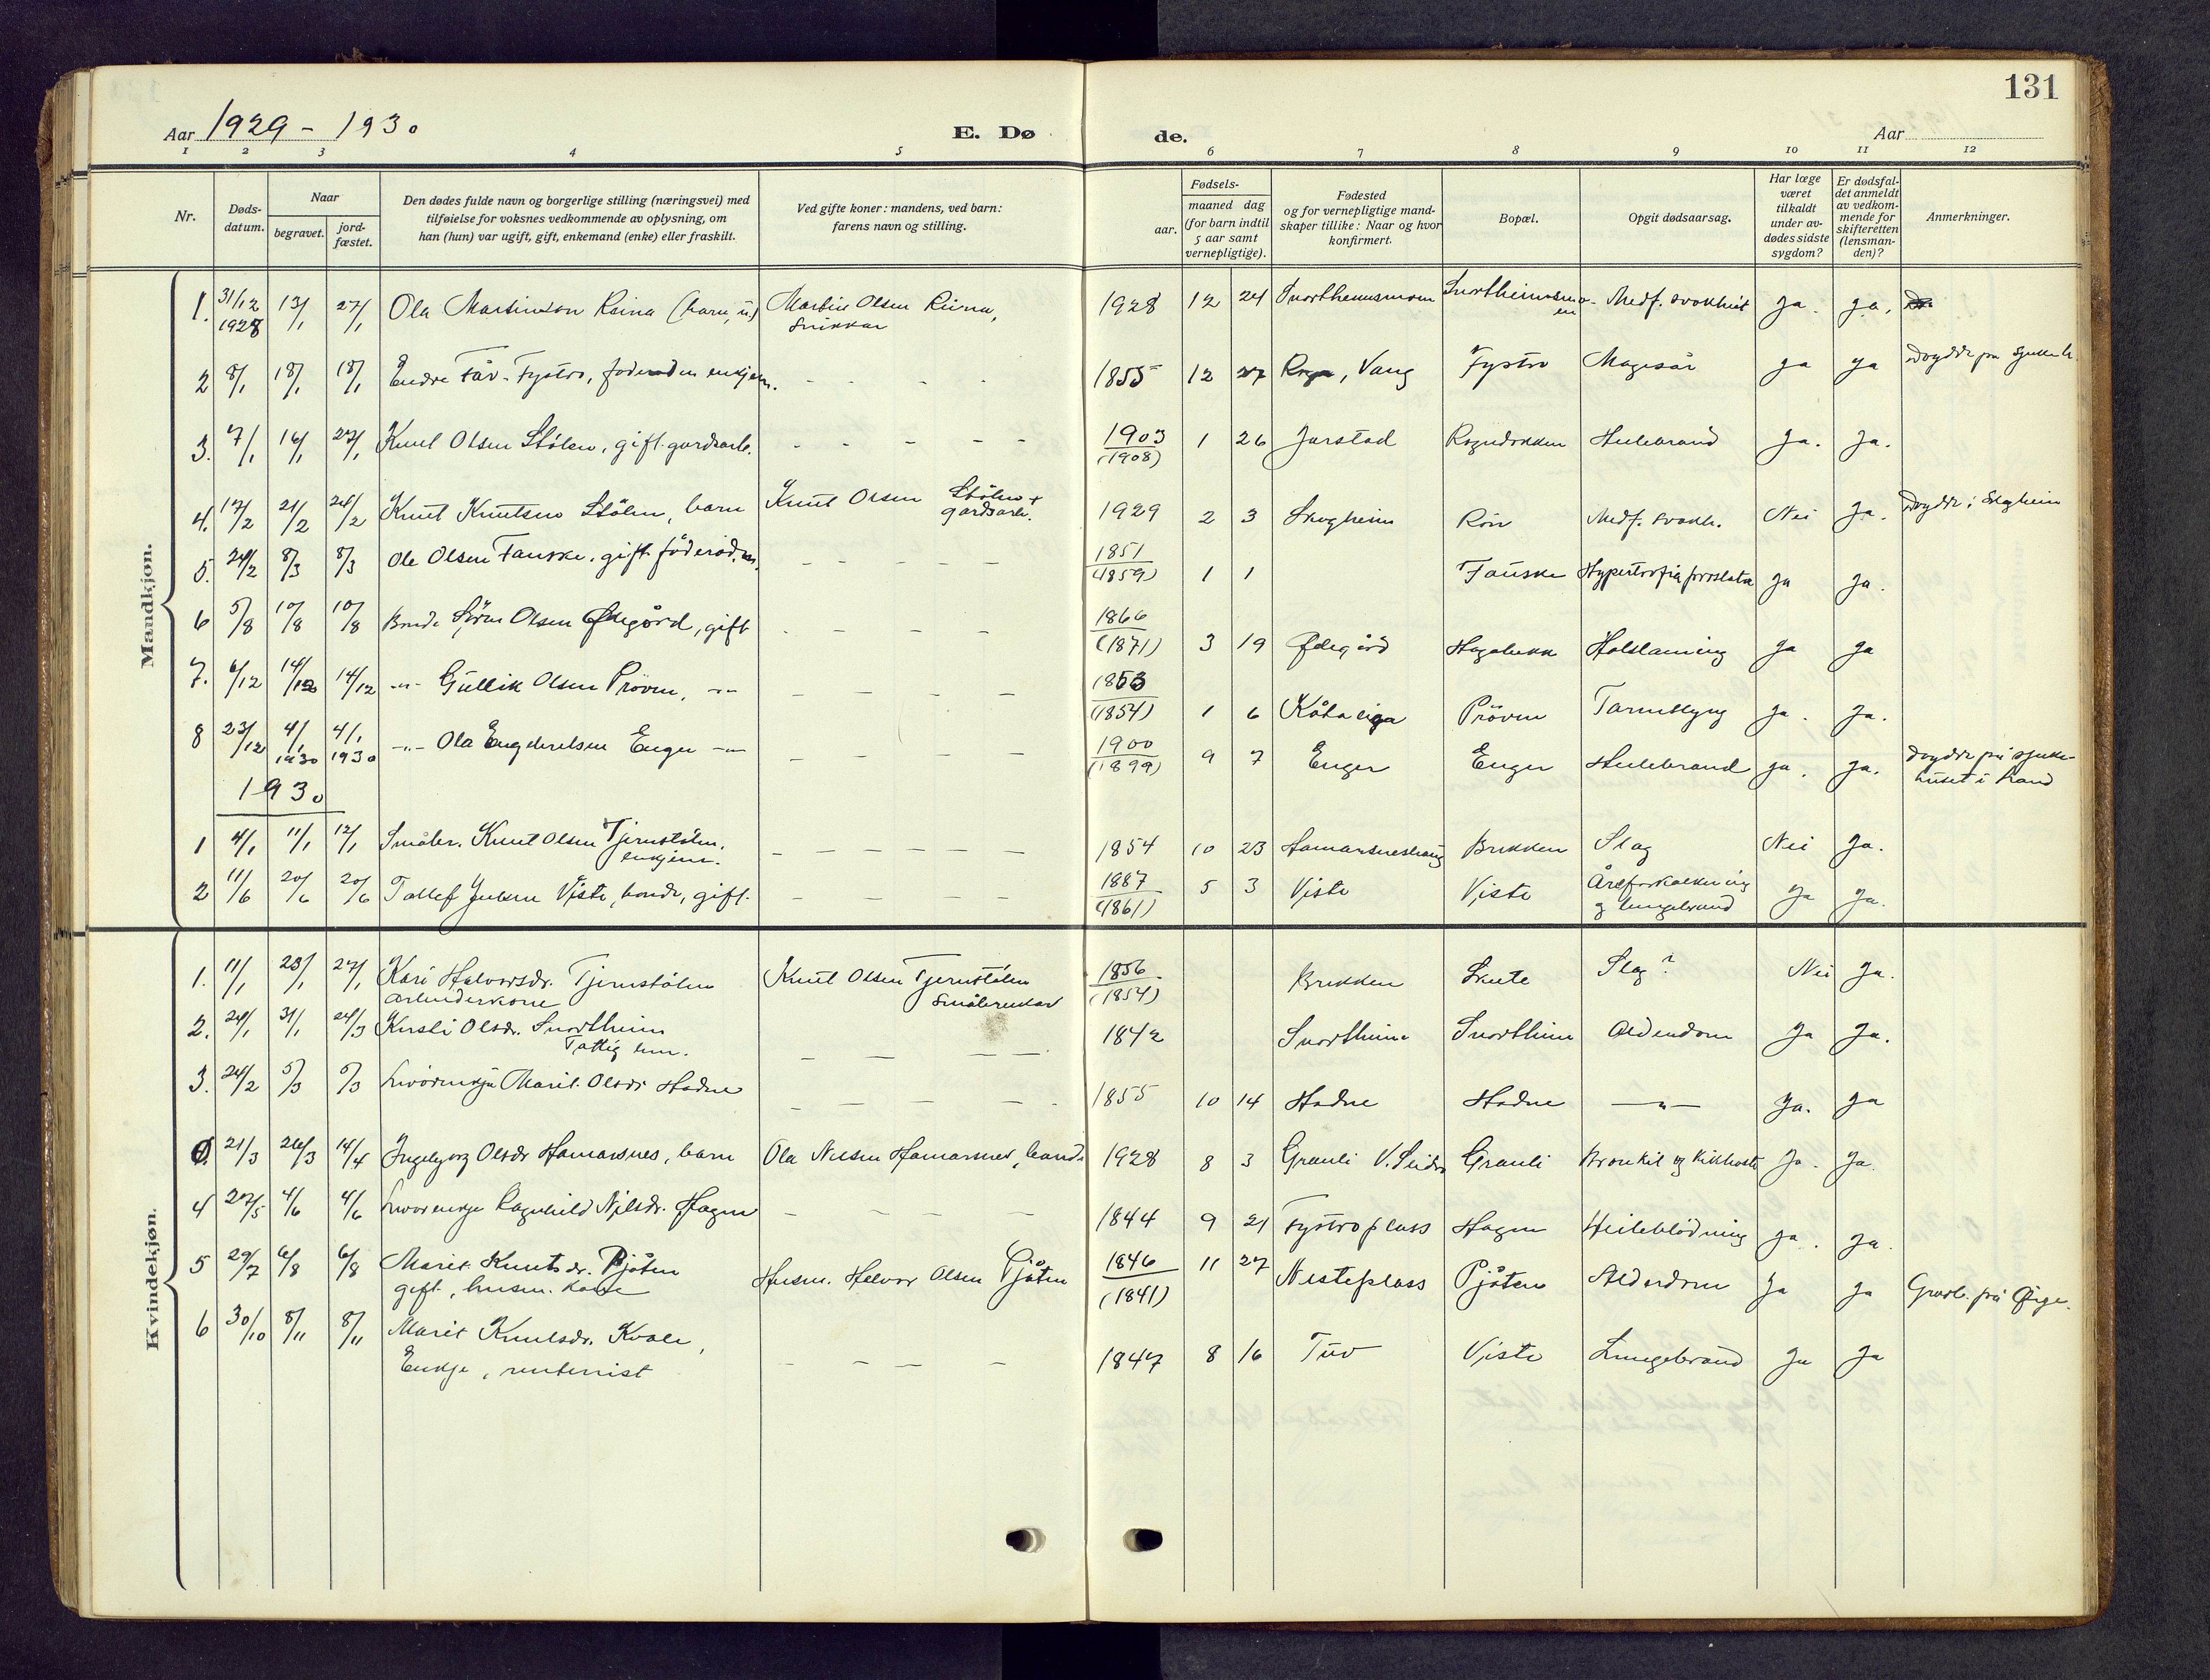 131
Aar 1929 - 1930
E. Dø
de.
Aar
1 2 3 4 5 6 7 8 9 10 11 12
Nr.
Døds-
datum.
Naar
begravet.
jord-
fæstet.
Den dødes fulde navn og borgerlige stilling (næringsvei) med
tilføielse for voksnes vedkommende av oplysning, om
han (hun) var ugift, gift, enkemand (enke) eller fraskilt.
Ved gifte koner: mandens, ved barn:
farens navn og stilling.
Fødsels-
aar.
maaned dag
(for barn indtil
5 aar samt
vernepligtige).
Fødested
og for vernepligtige mand-
skaper tillike: Naar og hvor
konfirmert.
Bopæl.
Opgit dødsaarsag.
Har læge
været
tilkaldt
under av-
dødes sidste
sygdom?
Er dødsfal-
det anmeldt
av vedkom-
mende for
skifteretten
(lensman-
den)?
Anmerkninger.
Mandkjøn.
1. 31/12 1928 13/1 27/1 Ola Martinson Reina (barn, u) Martin Olsen Reina, Snikkar 1928 12 24 Medf. svakheit Ja. Ja.
2 8/1 18/1 18/1 Endre Fystro, 1855 12 27 Vang Fystro Magesår Ja Ja
3. 7/1 16/1 27/1 Knut Olsen Stölen, gift gardsarb. - - - - - 1903 (1908) 1 26 Jarstad Rogndokken Hulebrand Ja. Ja.
4. 17/2 21/2 24/2 Knut Knutsen Stölen, barn Knut Olsen Stölen gardsarb. 1929 2 3 Skogheim Rön Medf. svakh. Nei Ja. Döydde i Skogheim
5. 24/2 8/3 8/3 Ole Olsen Fauske, gift föderådsm. - - - - - 1851 (1859) 1 1 Fauske Hypertrofia prostata Ja Ja.
6 5/8 10/8 10/8 Bonde Olsen Ødegård, gift - - - - 1866 (1871) 3 19 Ødegård Hagabekk Halslaming Ja Ja
7. 6/12 14/12 14/12 -"- Gullik Olsen Pröven, -"- - - - - - 1853 (1854) 1 6 Pröven Tarmslyng Ja. Ja.
8 23/12 4/1 1930 4/1 1930 -"- Ola Engebretsen Enger -"- - - - - 1900 (1899) 9 7 Enger Enger Hulebrand Ja. Ja. Döydde på sjuke-
huset i
1930
1 4/1 11/1 12/1 Småbr. Knut Olsen Tjernstölen, enkjem. - - - - - - 1854 10 23 Brekken Slag Nei Ja.
2 11/6 20/6 20/6 Tollef Viste, bonde, gift. - - - - - 1887 (1861) 5 3 Viste Viste Åreforkalkning
og lungebrand Ja Ja.
Kvindekjøn.
1. 11/1 23/1 27/1 Kari Halvorsdr. Tjernstölen
arbeiderkone Knut Olsen Tjernstölen
Småbrukar 1856 (1854) Brekken Skute Slag? Nei Ja.
2. 24/1 31/1 24/3 Kersti Olsdr. Snortheim
Fattig lem. - - - - 1842 Snortheim Snortheim Alderdom Ja Ja.
3. 24/2 5/3 5/3 Marit Olsdr Hadne - - - - - 1855 10 14 Hadne Hadne -"- Ja. Ja
21/3 26/3 14/4 Ingebjørg Olsdr Hamarsnes, barn Ola Nilsen Hamarsnes, bonde 1928 8 3 Granli V. Slidre Granli Bronkit og Kikhoste Ja. Ja.
4 27/5 4/6 4/6 Ragnhild Nilsdr. Hagen - - - - 1844 9 21 Fystro plass Hagen Heileblödning Ja. Ja.
5 29/7 6/8 6/8 Marit Knutsdr. Pjåten
gift, husm. kone Husm. Halvor Olsen Pjåten 1846 (1841) 11 27 Nesteplass Pjåten Alderdom Ja Ja Gravl. på Øije.
6 30/10 8/11 8/11 Marit Knutsdr. Kvale,
Enkje, rentenist - - - - 1847 8 16 Tuv Viste Lungebrand Ja Ja